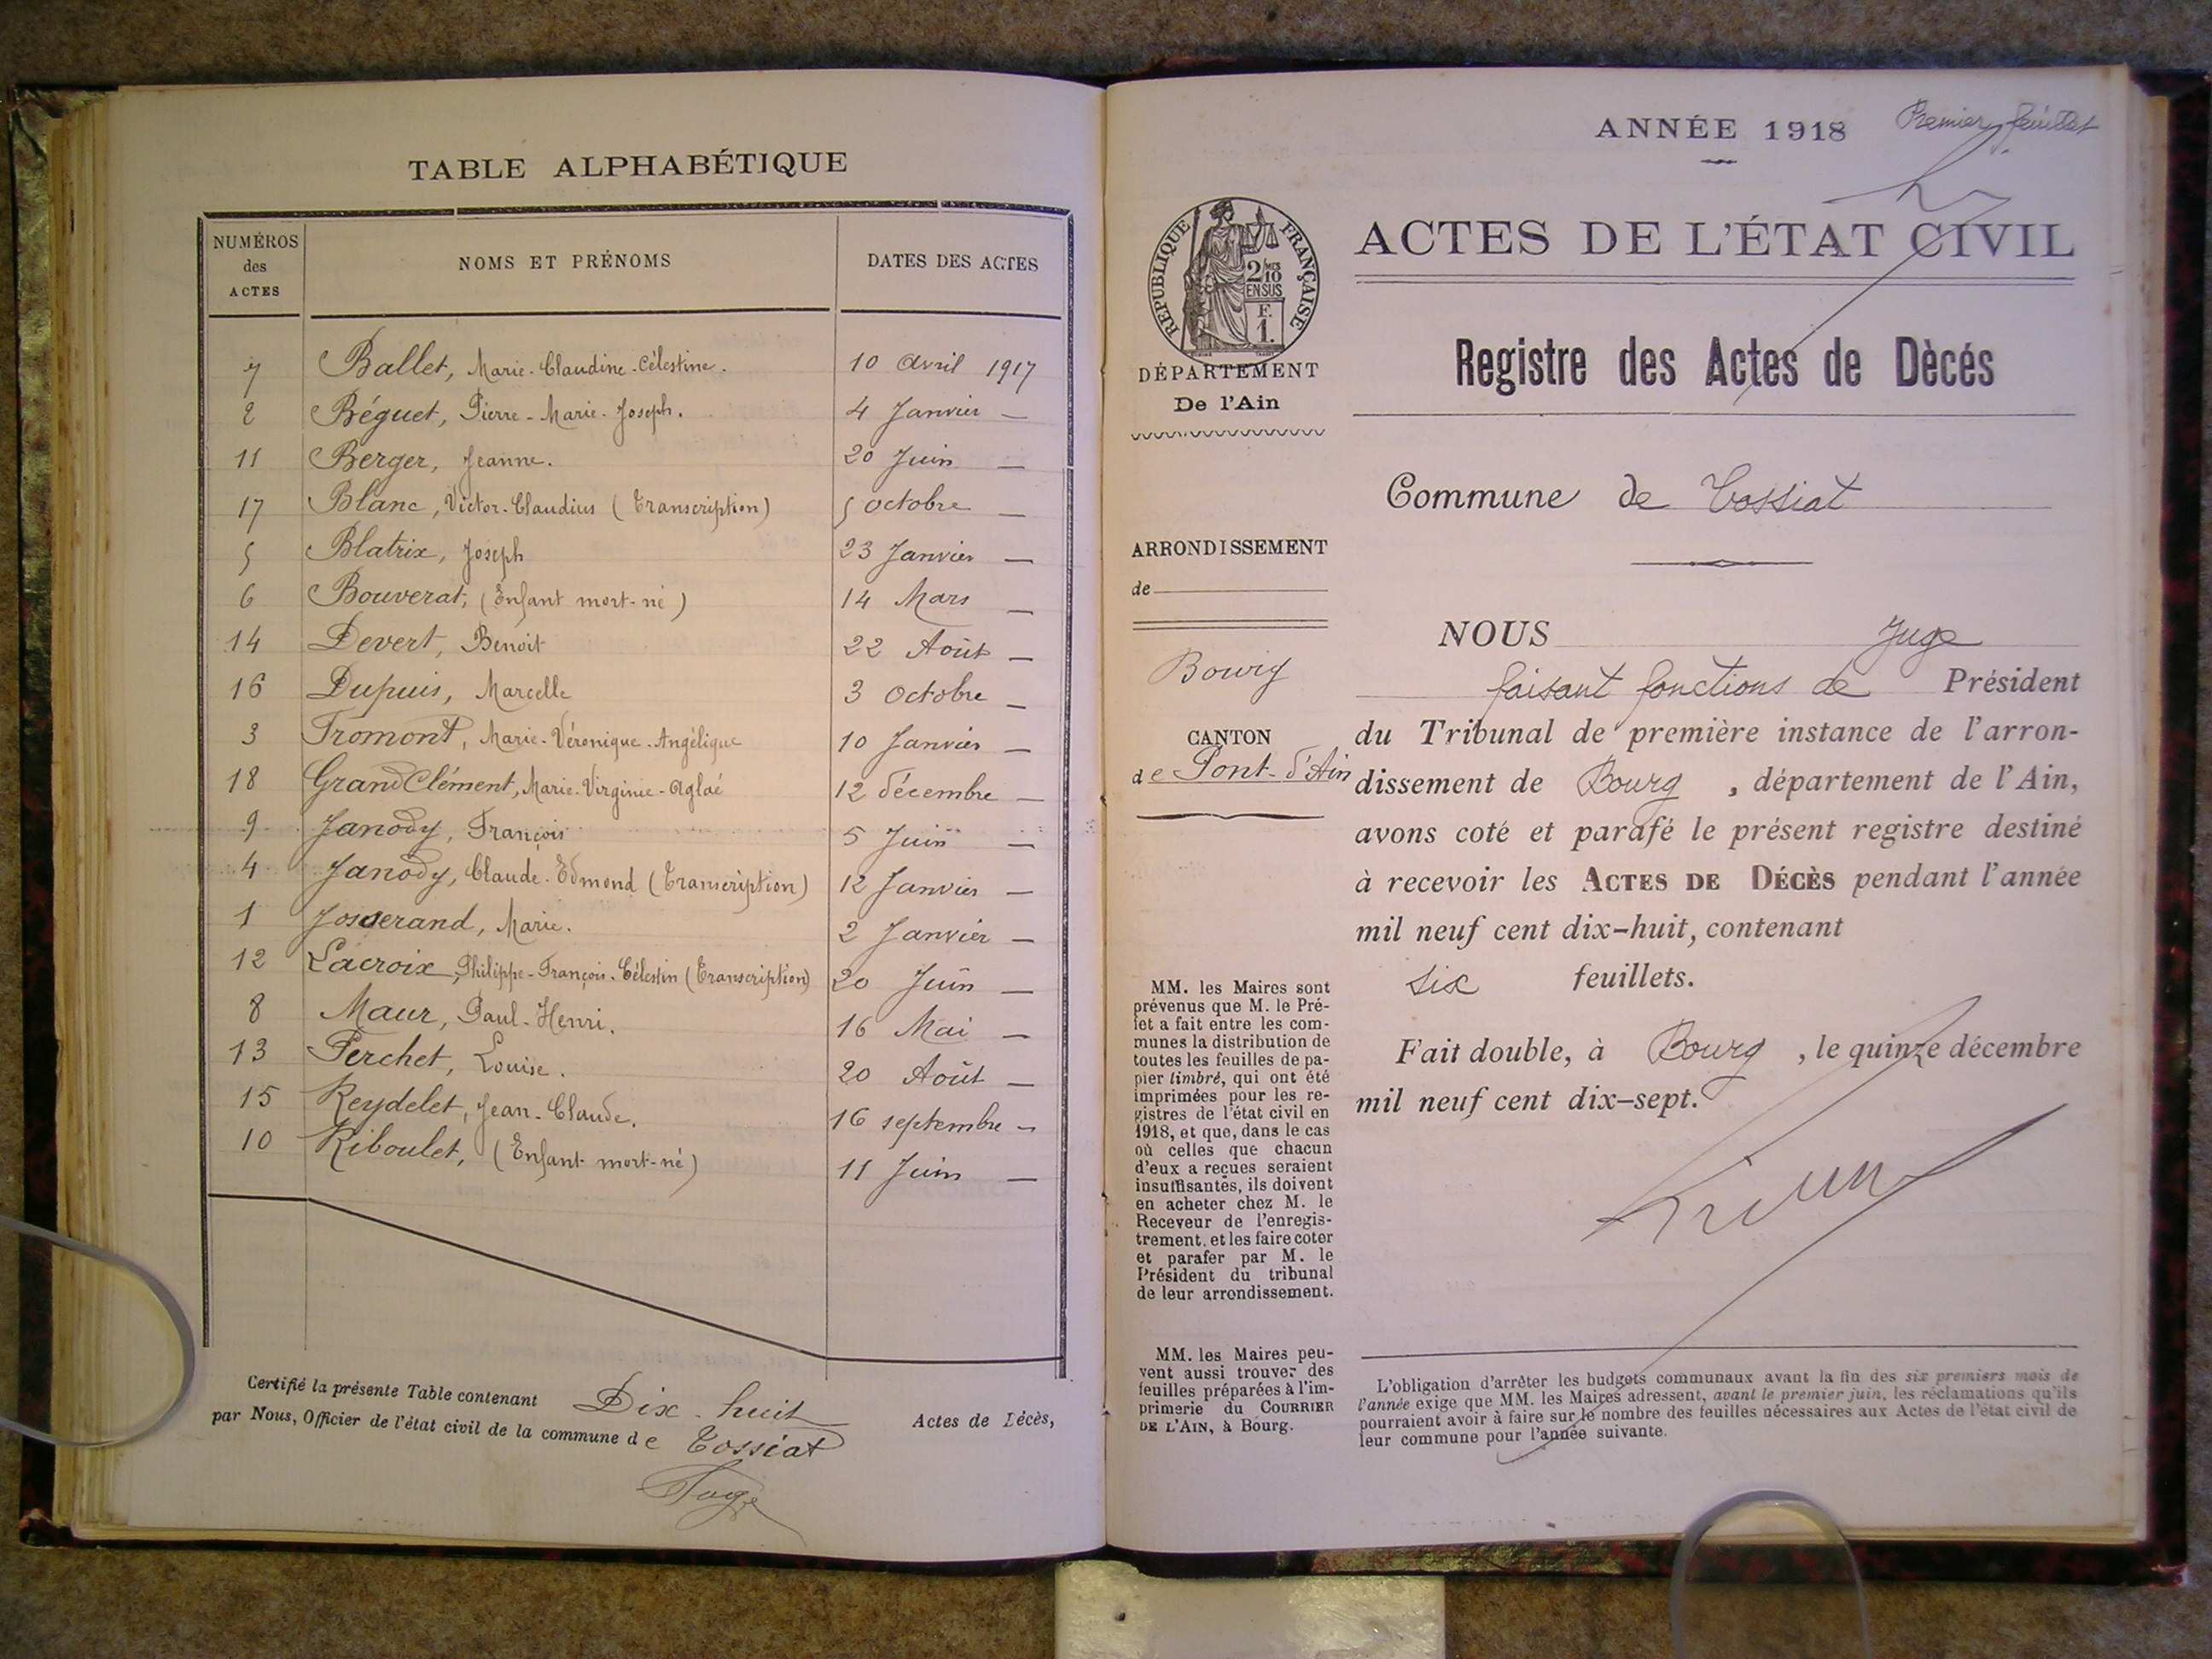 TABLE ALPHABÉTIQUE
NUMÉROS des ACTES NOMS ET PRÉNOMS DATES DES ACTES
7 Ballet, Marie-Claudine-Célestine. 10 avril 1917
2 Béguet, Pierre-Marie-Joseph. 4 Janvier —
11 Berger, Jeanne. 20 Juin —
17 Blanc, Victor-Claudius (Transcription) 5 octobre —
5 Blatrix, Joseph 23 Janvier —
6 Bouverat, (Enfant mort-né) 14 Mars —
14 Devert, Benoit 22 Août —
16 Dupuis, Marcelle 3 octobre —
3 Fromont, Marie-Véronique-Angélique 10 Janvier —
18 GrandClément, Marie-Virginie-Aglaé 12 décembre —
9 Janody, François 5 Juin —
4 Janody, Claude-Edmond (Transcription) 12 Janvier —
1 Josserand, Marie. 2 Janvier —
12 Lacroix, Philippe-François-Célestin (Transcription) 20 Juin —
8 Maur, Paul-Henri. 16 Mai —
13 Perchet, Louise. 20 Août —
15 Reydelet, Jean-Claude. 16 septembre —
10 Riboulet, (Enfant mort-né) 11 Juin —
Certifié la présente Table contenant Dix-huit Actes de Décès,
par Nous, Officier de l'état civil de la commune de Tossiat
ANNÉE 1918 Premier feuillet
RÉPUBLIQUE FRANÇAISE
2/10 MES
EN SUS
F.
1.
DÉPARTEMENT
De l'Ain
ARRONDISSEMENT
de
Bourg
CANTON
de Pont-d'Ain
MM. les Maires sont
prévenus que M. le Pré-
fet a fait entre les com-
munes la distribution de
toutes les feuilles de pa-
pier timbré, qui ont été
imprimées pour les re-
gistres de l'état civil en
1918, et que, dans le cas
où celles que chacun
d'eux a reçues seraient
insuffisantes, ils doivent
en acheter chez M. le
Receveur de l'enregis-
trement, et les faire coter
et parafer par M. le
Président du tribunal
de leur arrondissement.
MM. les Maires peu-
vent aussi trouver des
feuilles préparées à l'im-
primerie du COURRIER
DE L'AIN, à Bourg.
ACTES DE L'ÉTAT CIVIL
Registre des Actes de Dècés
Commune de Tossiat
NOUS Juge
faisant fonctions de Président
du Tribunal de première instance de l'arron-
dissement de Bourg, département de l'Ain,
avons coté et parafé le présent registre destiné
à recevoir les ACTES DE DÉCÈS pendant l'année
mil neuf cent dix-huit, contenant
six feuillets.
Fait double, à Bourg, le quinze décembre
mil neuf cent dix-sept.
L'obligation d'arrêter les budgets communaux avant la fin des six premiers mois de
l'année exige que MM. les Maires adressent, avant le premier juin, les réclamations qu'ils
pourraient avoir à faire sur le nombre des feuilles nécessaires aux Actes de l'état civil de
leur commune pour l'année suivante.